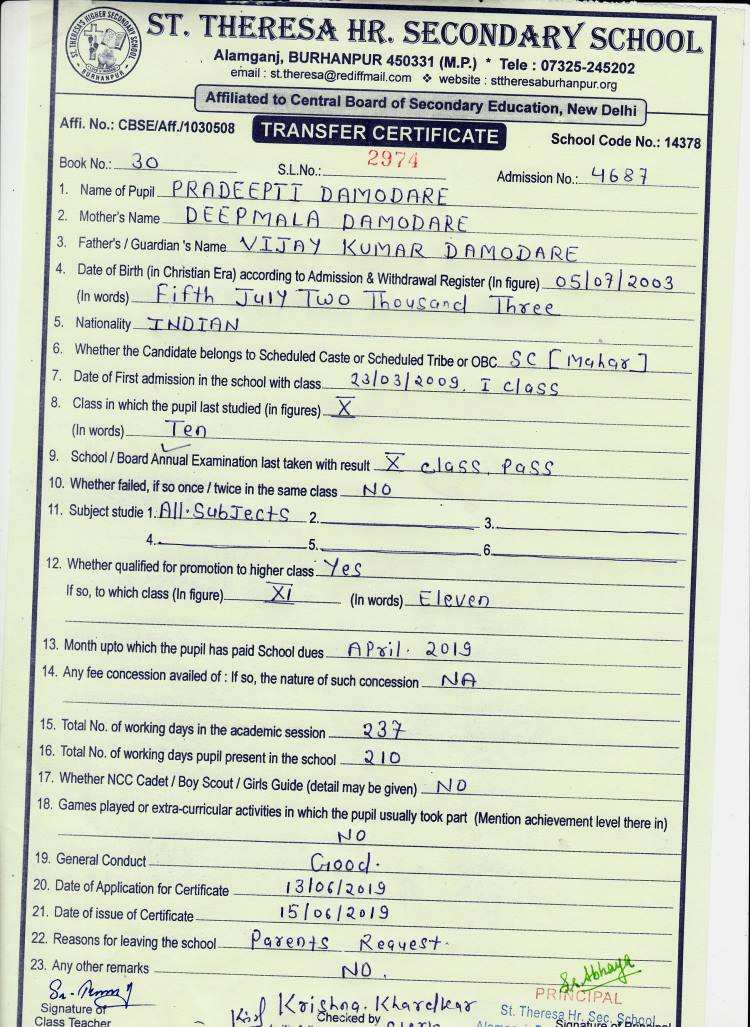 ST. THERESA'S HIGHER SECONDARY SCHOOL
BURHANPUR
ST. THERESA HR. SECONDARY SCHOOL
Alamganj, BURHANPUR 450331 (M.P.) * Tele : 07325-245202
email : st.theresa@rediffmail.com ❖ website : sttheresaburhanpur.org
Affiliated to Central Board of Secondary Education, New Delhi
Affi. No.: CBSE/Aff./1030508 TRANSFER CERTIFICATE School Code No.: 14378
Book No.: 30 S.L.No.: 2974 Admission No.: 4687
1. Name of Pupil PRADEEPTI DAMODARE
2. Mother's Name DEEPMALA DAMODARE
3. Father's / Guardian 's Name VIJAY KUMAR DAMODARE
4. Date of Birth (in Christian Era) according to Admission & Withdrawal Register (In figure) 05/07/2003
(In words) Fifth July Two Thousand Three
5. Nationality INDIAN
6. Whether the Candidate belongs to Scheduled Caste or Scheduled Tribe or OBC SC [Mahar]
7. Date of First admission in the school with class 23/03/2009, I class
8. Class in which the pupil last studied (in figures) X
(In words) Ten
9. School / Board Annual Examination last taken with result X class, Pass
10. Whether failed, if so once / twice in the same class NO
11. Subject studie 1. All. Subjects 2. 3.
4. 5. 6.
12. Whether qualified for promotion to higher class Yes
If so, to which class (In figure) XI (In words) Eleven
13. Month upto which the pupil has paid School dues April. 2019
14. Any fee concession availed of : If so, the nature of such concession NA
15. Total No. of working days in the academic session 237
16. Total No. of working days pupil present in the school 210
17. Whether NCC Cadet / Boy Scout / Girls Guide (detail may be given) NO
18. Games played or extra-curricular activities in which the pupil usually took part (Mention achievement level there in)
NO
19. General Conduct Good.
20. Date of Application for Certificate 13/06/2019
21. Date of issue of Certificate 15/06/2019
22. Reasons for leaving the school Parents Request.
23. Any other remarks NO.
Sr. Abhaya
PRINCIPAL
Signature of Krishna. Kharolkar St. Theresa Hr. Sec. School
Class Teacher Checked by Signature of Principal